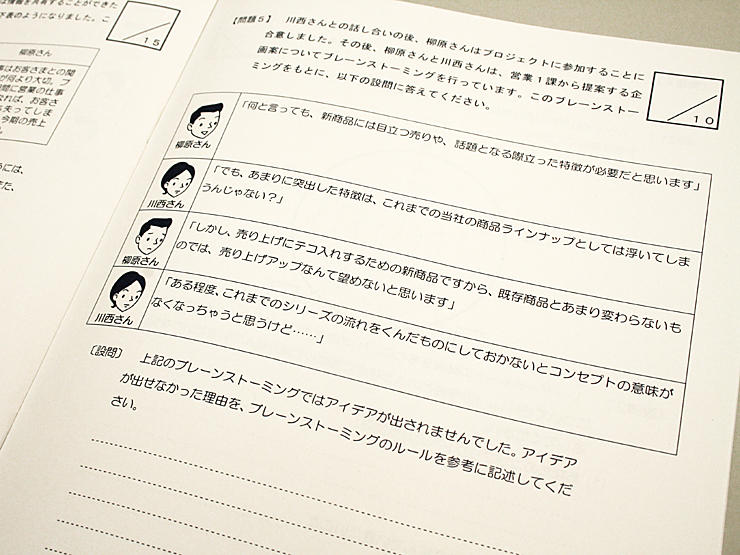 は情報を共有することができた
下表のようになりました。こ
15
柳原さん
事はお客さまとの関
が何より大切。プ
間に営業の仕事
なれば、お客さ
失ってしま
今期の売上
うには、
【問題5】 川西さんとの話し合いの後、柳原さんはプロジェクトに参加することに
合意しました。その後、柳原さんと川西さんは、営業1課から提案する企
画案についてブレーンストーミングを行っています。このブレーンストー
ミングをもとに、以下の設問に答えてください。
10
柳原さん
「何と言っても、新商品には目立つ売りや、話題となる際立った特徴が必要だと思います」
川西さん
「でも、あまりに突出した特徴は、これまでの当社の商品ラインナップとしては浮いてしま
うんじゃない？」
柳原さん
「しかし、売り上げにテコ入れするための新商品ですから、既存商品とあまり変わらないも
のでは、売り上げアップなんて望めないと思います」
川西さん
「ある程度、これまでのシリーズの流れをくんだものにしておかないとコンセプトの意味が
なくなっちゃうと思うけど……」
〔設問〕 上記のブレーンストーミングではアイデアが出されませんでした。アイデア
が出せなかった理由を、ブレーンストーミングのルールを参考に記述してくだ
さい。